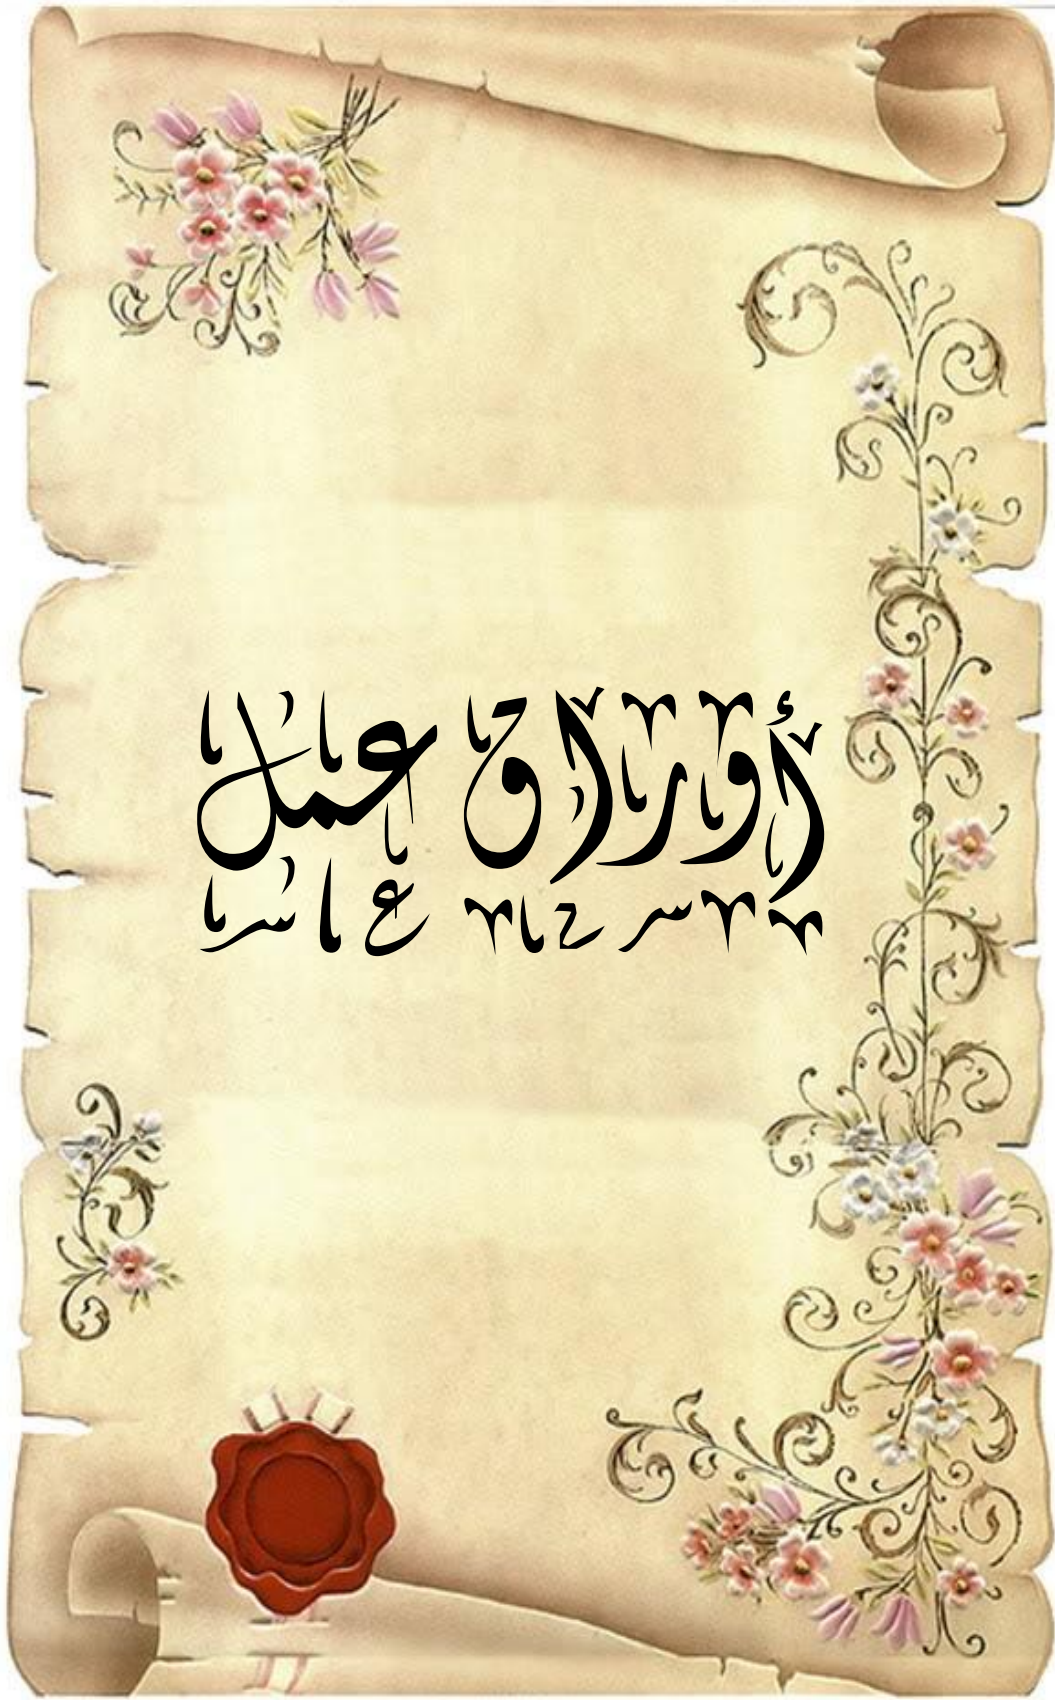 أوراق عمل